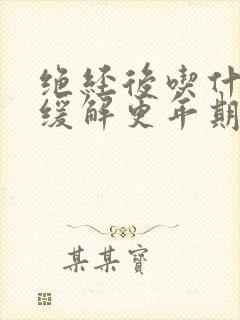 绝经後喫什
缓解更年期
某某寶